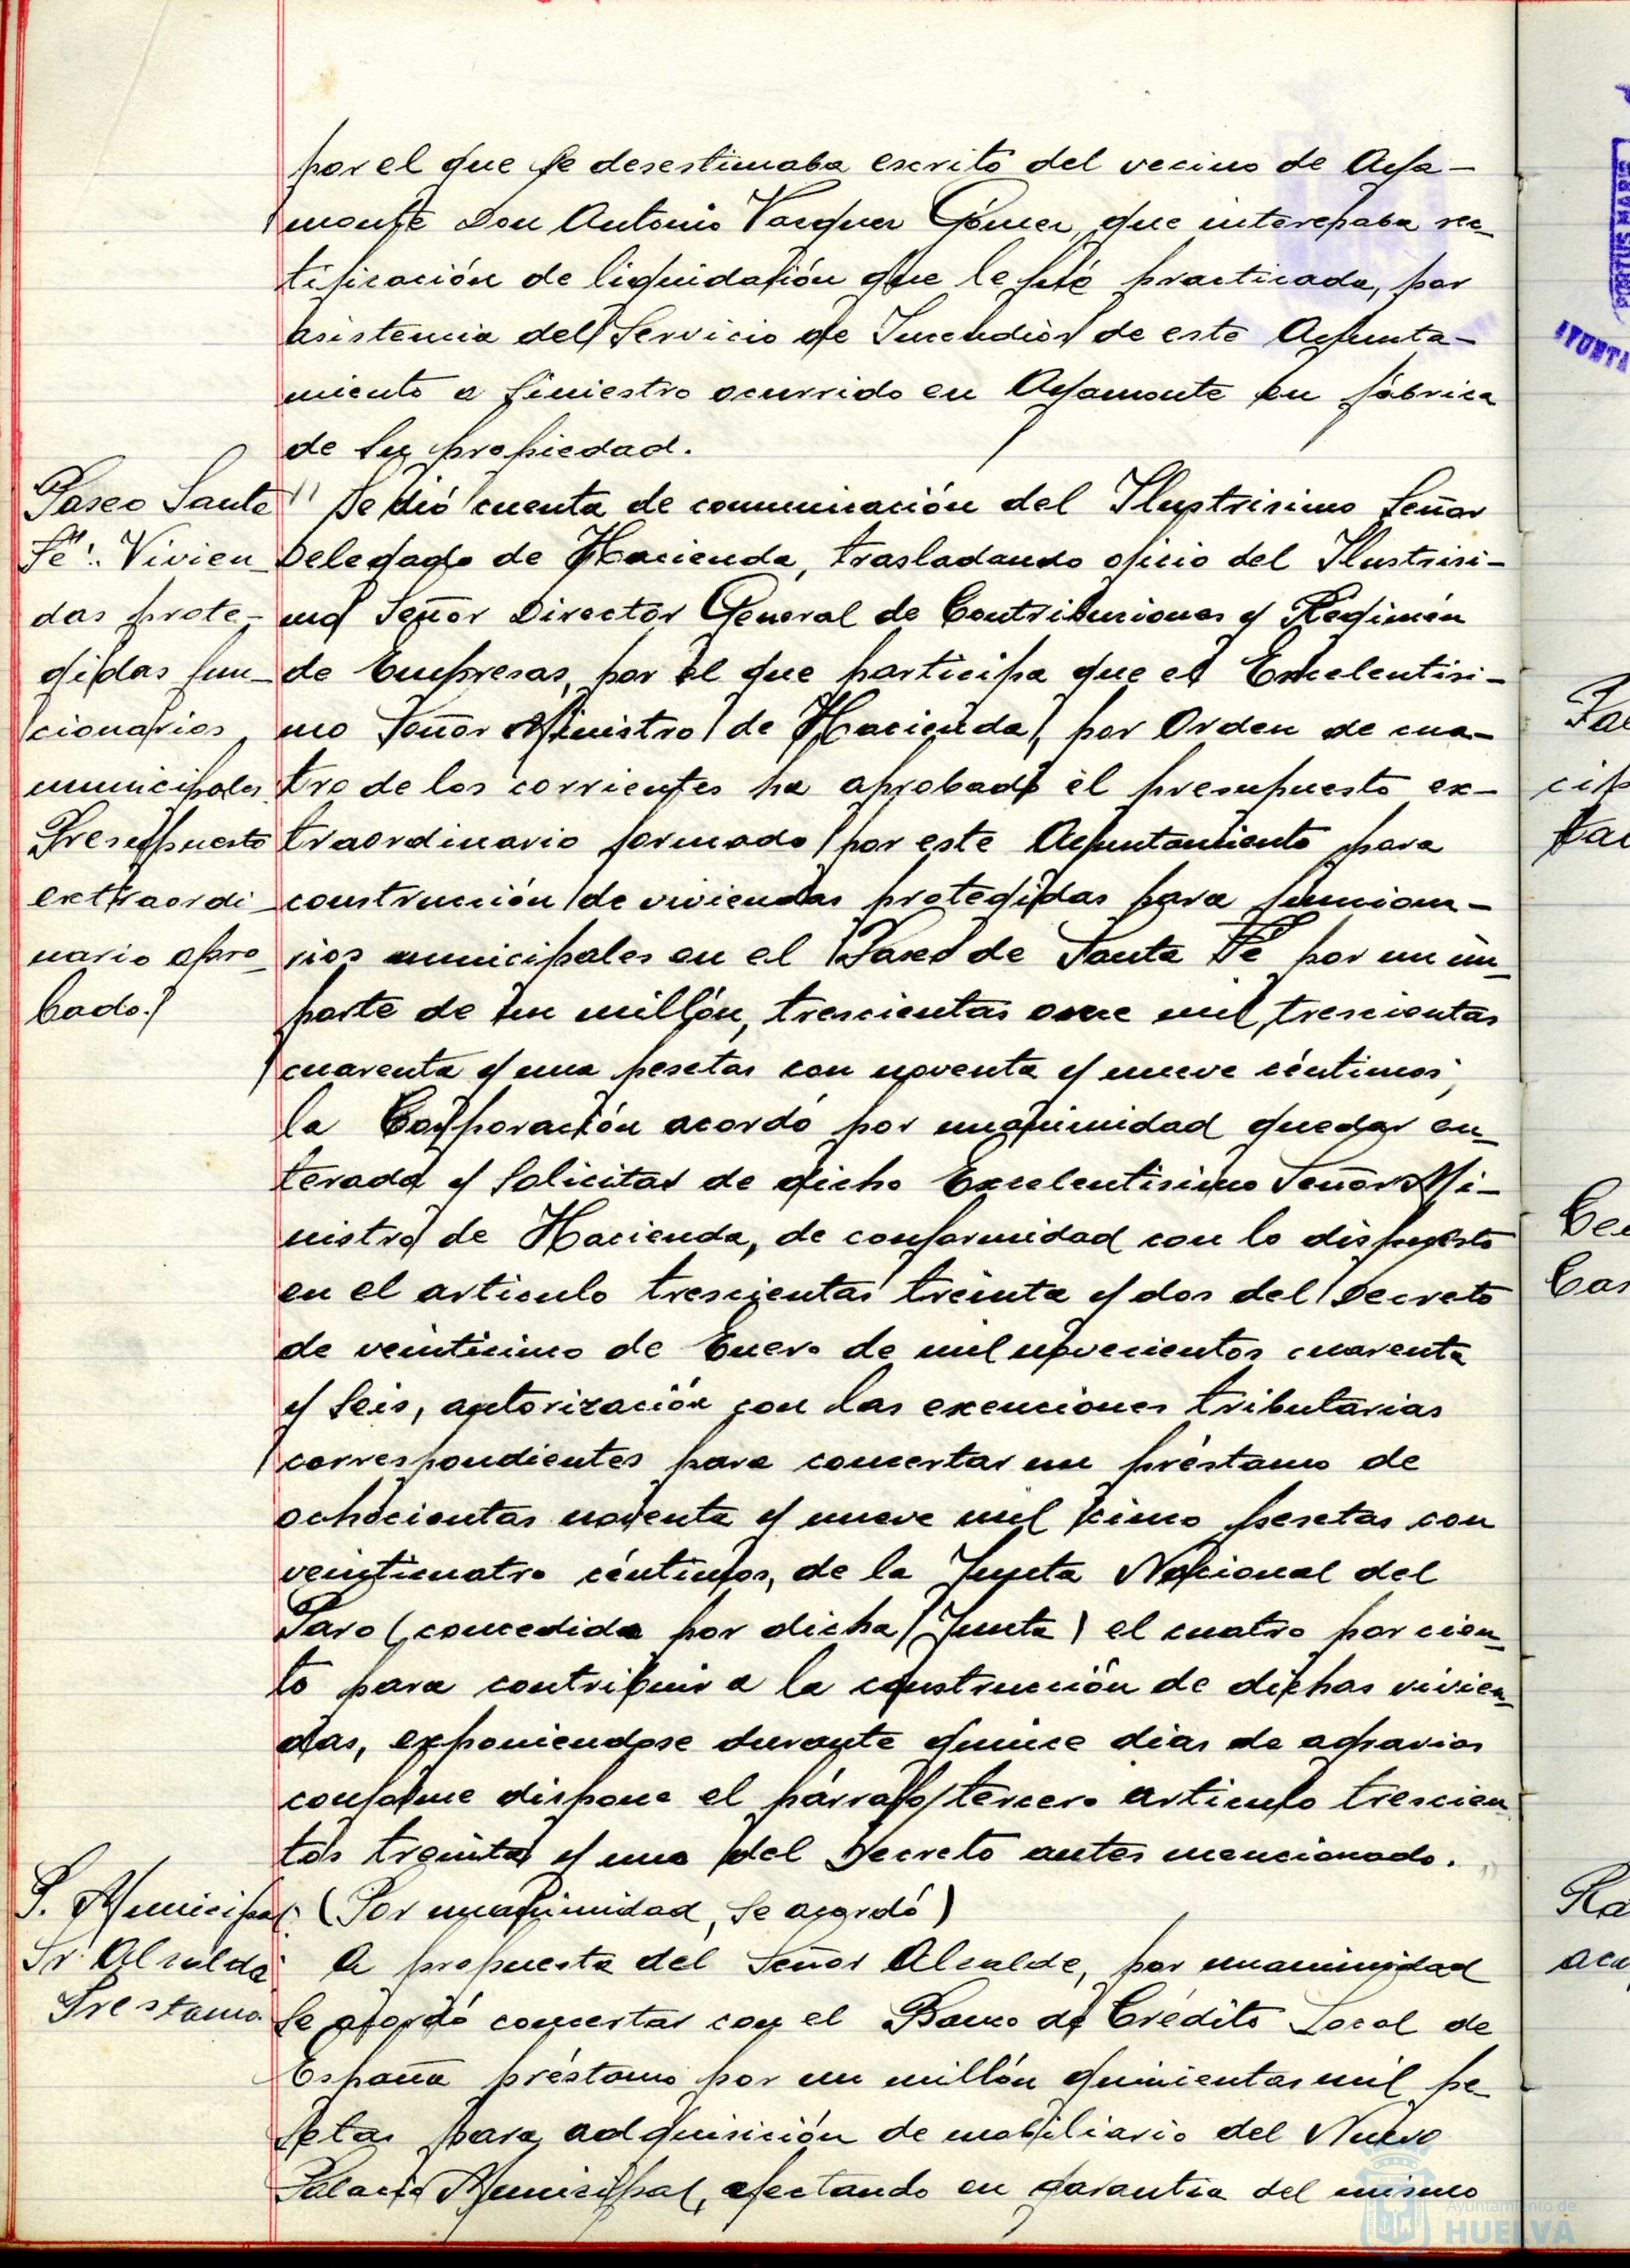 por el que se desestimaba escrito del vecino de Aya-
monte Don Antonio Vazquez Gómez, que interesaba rec-
tificación de liquidación que le fué practicada, por
asistencia del Servicio de Incendios de este Ayunta-
miento a siniestro ocurrido en Ayamonte en fábrica
de su propiedad.
Paseo Santa
Fé". Vivien-
das prote-
gidas fun-
cionarios
municipales.
Presupuesto
extraordi-
nario apro-
bado.
" Se dió cuenta de comunicación del Ilustrisimo Señor
Delegado de Hacienda, trasladando oficio del Ilustrisi-
mo Señor Director General de Contribuciones y Regimen
de Empresas, por el que participa que el Excelentisi-
mo Señor Ministro de Hacienda, por Orden de cua-
tro de los corrientes ha aprobado el presupuesto ex-
traordinario formado por este Ayuntamiento para
construcción de viviendas protegidas para funciona-
rios municipales en el Paseo de Santa Fé por un im-
porte de un millón, trescientas once mil, trescientas
cuarenta y una pesetas con noventa y nueve céntimos;
la Corporación acordó por unanimidad quedar en-
terada y solicitar de dicho Excelentisimo Señor Mi-
nistro de Hacienda, de conformidad con lo dispuesto
en el articulo trescientas treinta y dos del Decreto
de veinticinco de Enero de mil novecientos cuarenta
y seis, autorización con las exenciones tributarias
correspondientes para concertar un préstamo de
ochocientas noventa y nueve mil cinco pesetas con
veinticuatro céntimos, de la Junta Nacional del
Paro (concedida por dicha Junta) el cuatro por cien-
to para contribuir a la construcción de dichas vivien-
das, exponiendose durante quince dias de agravios
conforme dispone el párrafo tercero articulo trescien-
tos treinta y uno del Decreto antes mencionado. "
(Por unanimidad, se acordó)
P. Municipal.
Sr. Alcalde
Prestamo.
A propuesta del Señor Alcalde, por unanimidad
se acordó concertar con el Banco de Crédito Local de
España préstamo por un millón quinientas mil pe-
setas para adquisición de mobiliario del Nuevo
Palacio Municipal, afectando en garantia del mismo
PORTUS MARIS
AYUNTA
Ayuntamiento de
HUELVA